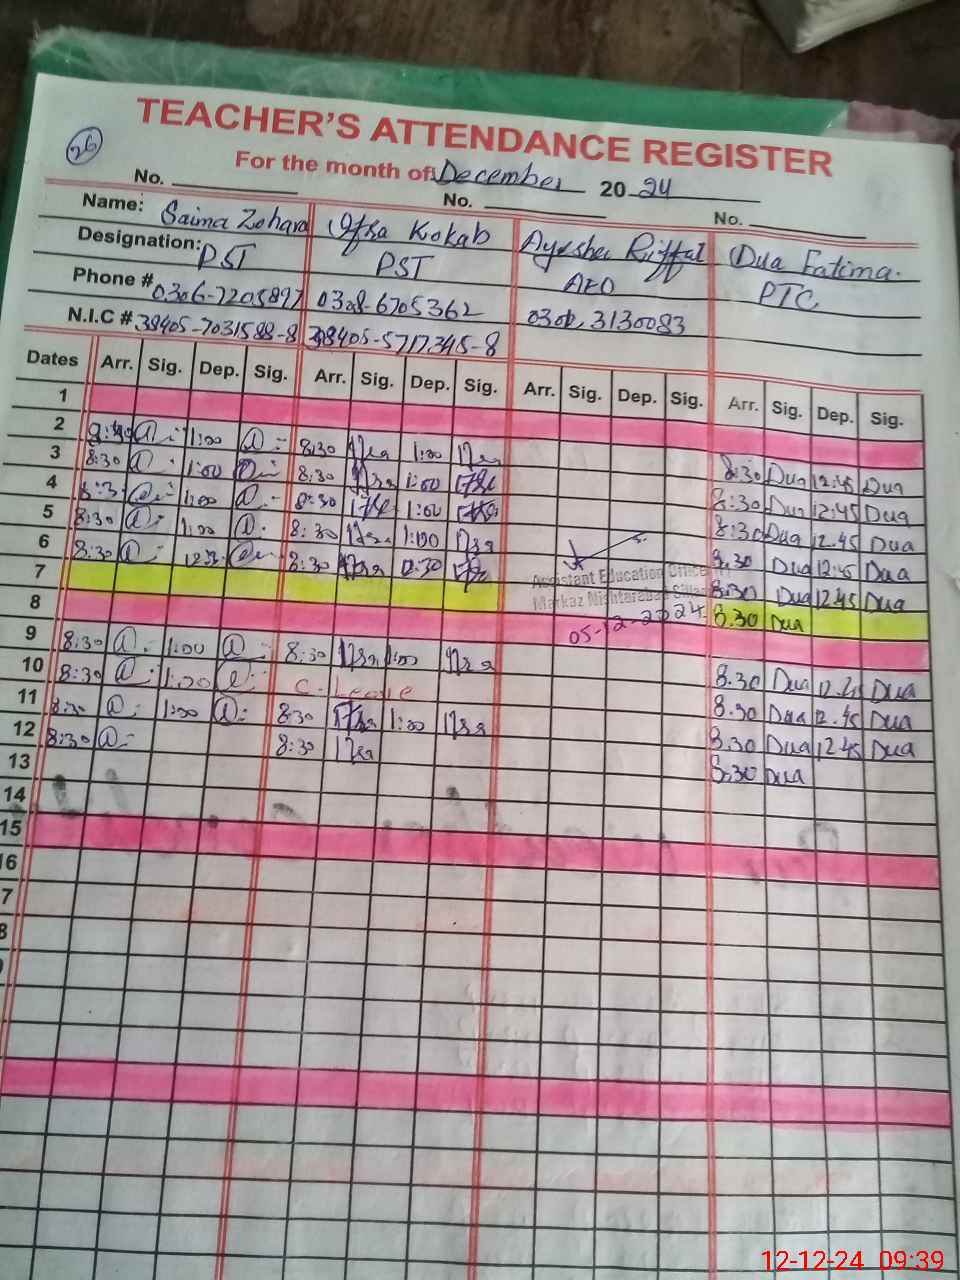 TEACHER'S ATTENDANCE REGISTER
26
For the month of December 20 24
No. No. No.
Name: Saima Zohara Iqra Kokab Ayesha Riffat Dua Fatima.
Designation: PST PST AEO PTC
Phone # 0306-7205897 0308-6705362 0302, 3130083
N.I.C # 38405-7031588-8 38405-5717345-8
Dates Arr. Sig. Dep. Sig. Arr. Sig. Dep. Sig. Arr. Sig. Dep. Sig. Arr. Sig. Dep. Sig.
1
2 8:30 1:00 8:30 Iqra 1:00 Iqra 8:30 Dua 12:45 Dua
3 8:30 1:00 8:30 Iqra 1:00 Iqra 8:30 Dua 12:45 Dua
4 8:3 1:00 8:30 Iqra 1:00 Iqra 8:30 Dua 12.45 Dua
5 8:30 1:00 8:30 Iqra 1:00 Iqra 8.30 Dua 12:45 Dua
6 8:30 12:30 8:30 Iqra 12:30 Iqra 8:30 Dua 12.45 Dua
7 Assistant Education Officer 8.30 Dua
Markaz Nishtarabad
8 05-12-2024
9 8:30 1:00 8:30 Iqra 1:00 Iqra 8.30 Dua 12.45 Dua
10 8:30 1:00 C-Leave 8.30 Dua 12.45 Dua
11 8:30 1:00 8:30 Iqra 1:00 Iqra 8.30 Dua 12.45 Dua
12 8:30 8:30 Iqra 8.30 Dua
13
14
15
16
7
8
12-12-24 09:39